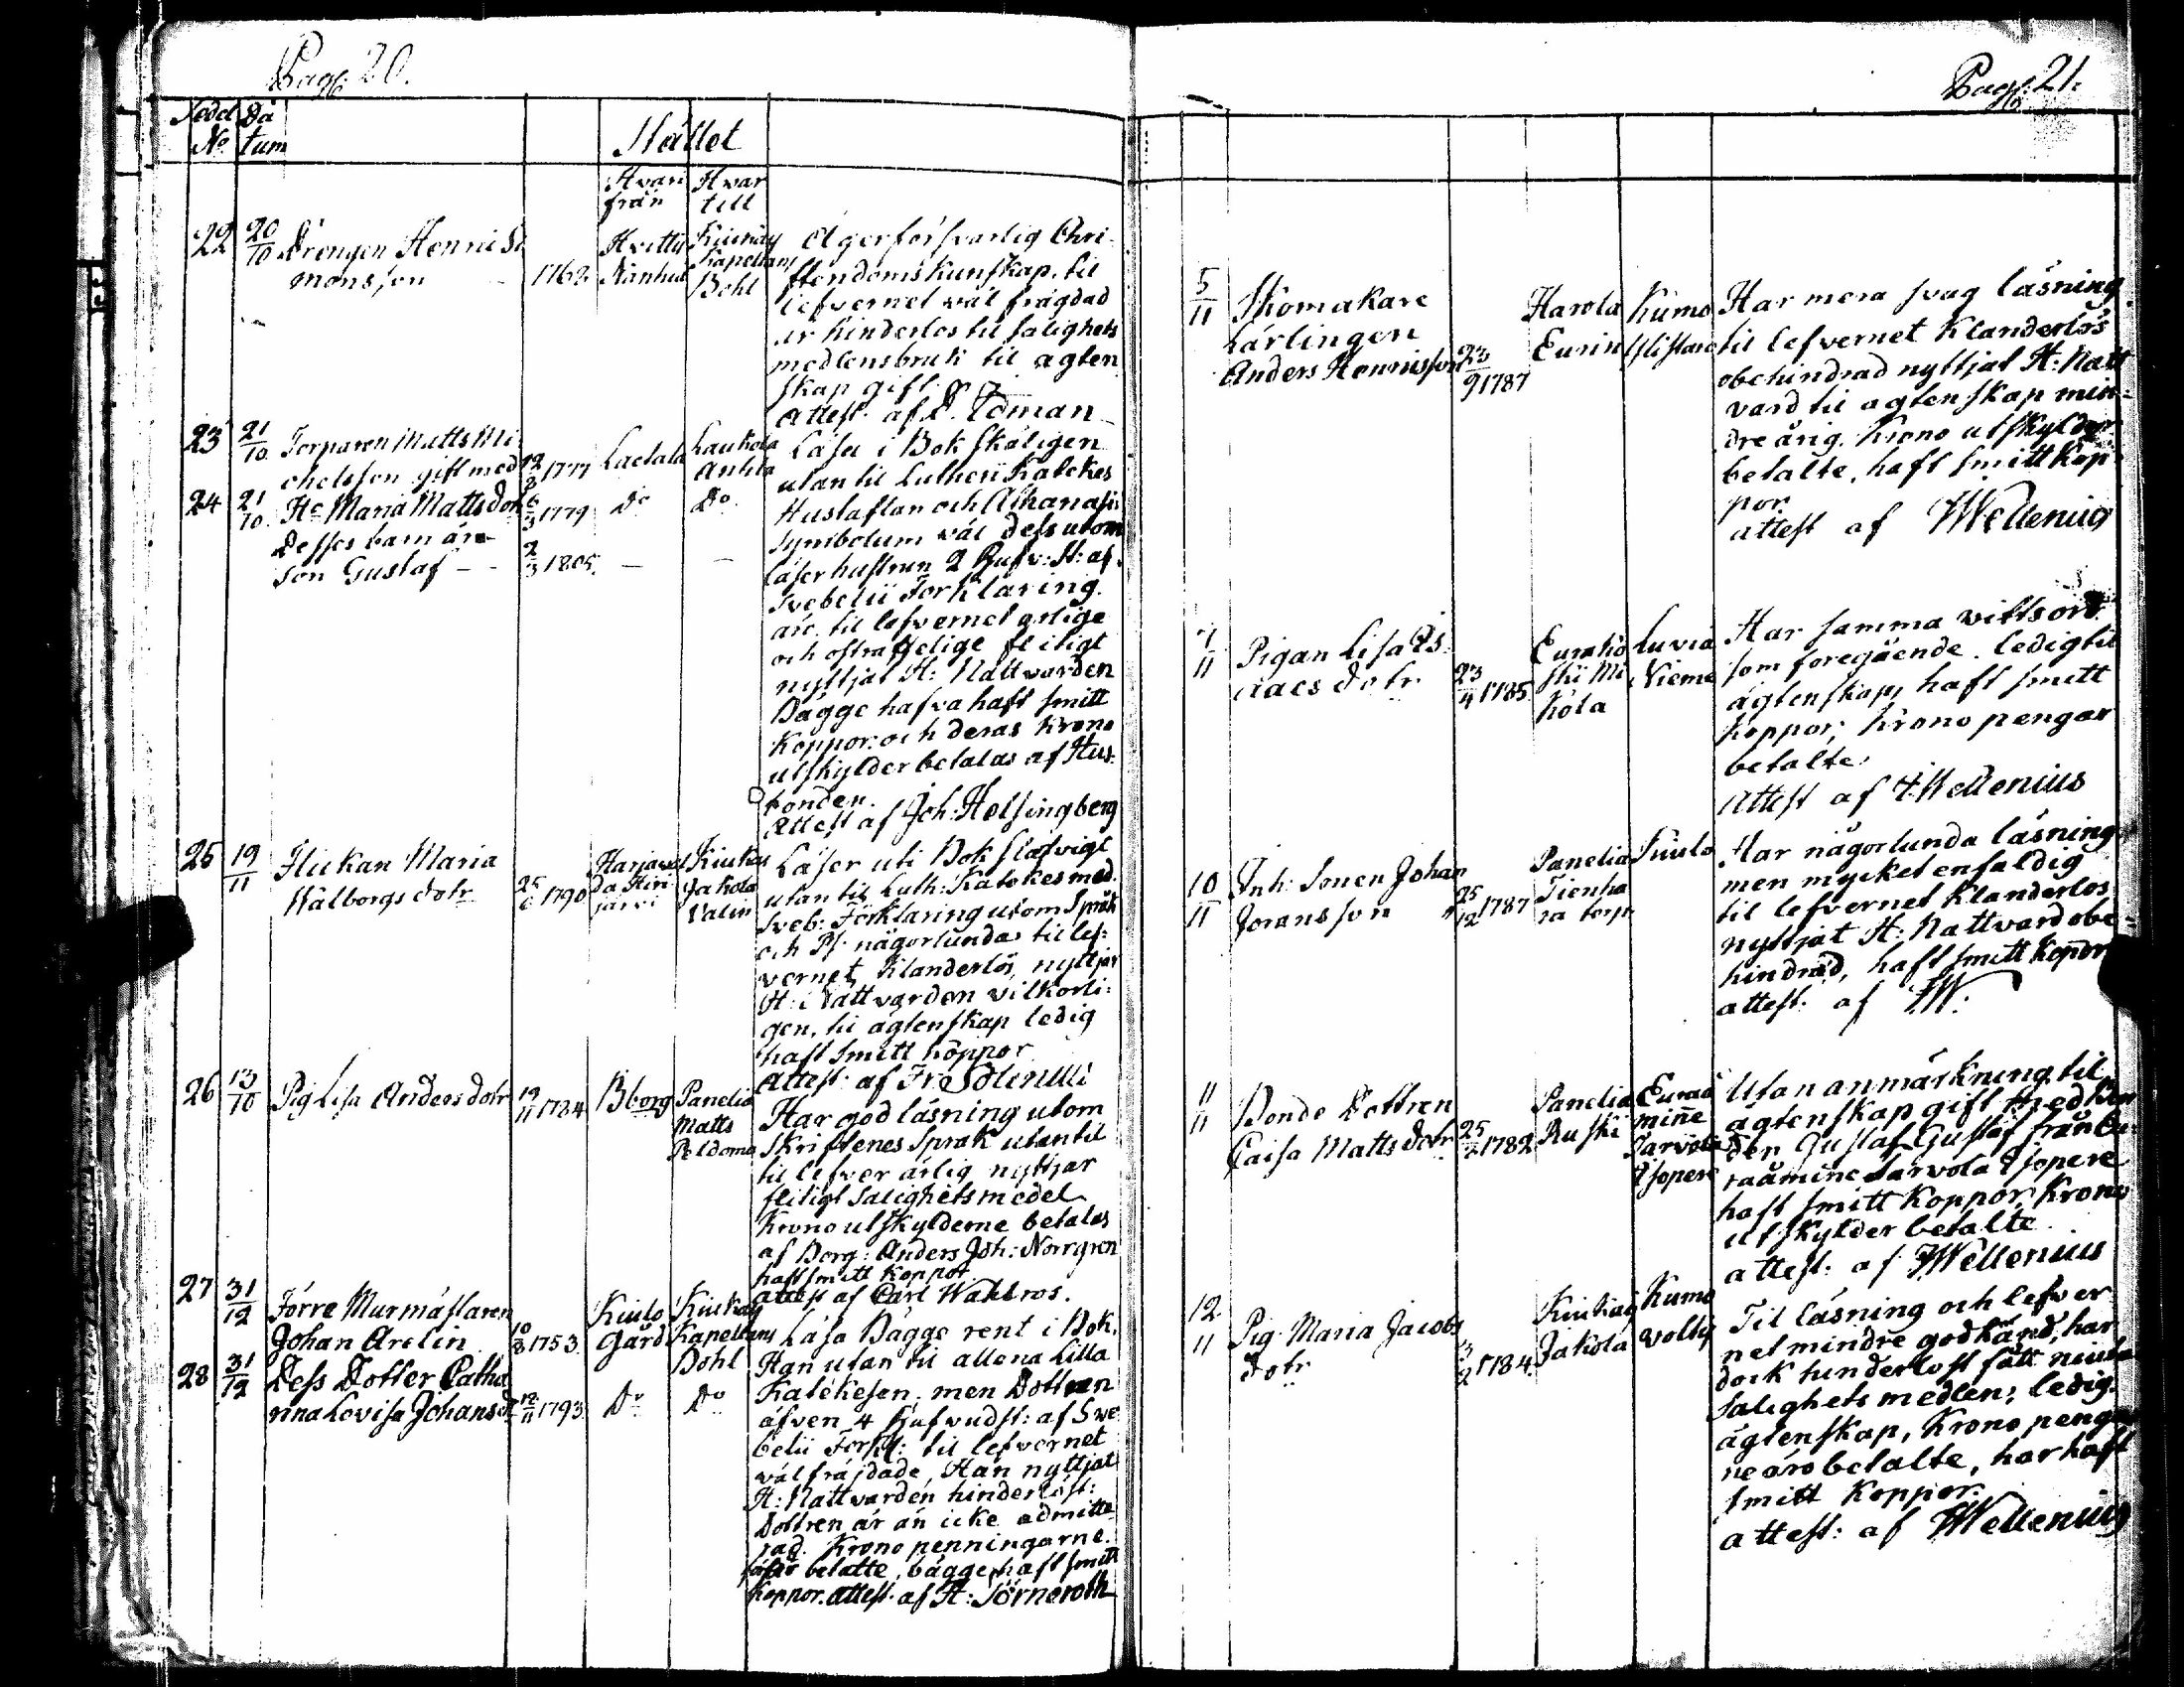 Pag: 20.
Sedel Da
No. tum
Stället
Hvari Hvar
från till
22 20/10 Drengen Henric Si
monsson 1762
Hvittis Kiukais
Kapellans
Bohl
Äger försvarlig Chri
stendoms kunskap, til
lefvernet väl frägdad
är hinderlös til salighets
medlens bruk til ägten
skap gift.
Attest. af Edman
23 21/10 Torparen Matts Mi
chelsson gift med 1777
24 21/10 Ho Maria Matts dotr 1779 Do Do
Desses barn är
Son Gustaf - - 2/3 1805. - -
Laukola
Anttila
Läser i Bok skäligen
utan til Lutheri Katekes
Hustaflan och Athanasii
Symbolum väl dess utom
läser hustrun 2 Hufv: St: af
Svebelii Förklaring.
äro til lefvernet ärlige
och ostraffelige flitigt
nyttjat H: Nattvarden
Bägge hafva haft smitt
koppor. och deras krono
utskylder betalas af Hus:
bonden.
Attest af Joh: Helsingberg
25 19/11 Flickan Maria
Walborgs dotr 25/6 1790
Harjaval Kiukais
da Hiri Jakola
järvi Valin
Läser uti Bok stafvigt
utan til Luth: Katekes med
Sveb: Förklaring utom Språk
och Ps. någorlunda til lef:
vernet klanderlös, nyttjar
H: Nattvarden vilkorli:
gen. til ägtenskap ledig
haft smitt koppor
Attest: af Fr:
26 13/10 Pig Lisa Anders dotr 19/11 1784 Bborg Panelia
Matts
Peldoma
Har god läsning utom
Skriftenes Språk utantil
til lefver ärlig nyttjar
flitigt salighets medel
Krono utskylderne betalas
af Borg: Anders Joh: Norrgren
haft smitt koppor
attest af Carl Wahlros.
27 31/12 Förre Murmästaren
Johan Arelin 10/8 1753.
Kiulo Kiukais
Gård Kapellans
Bohl
28 31/12 Dess Dotter Catha
rina Lovisa Johans d 12/11 1793 Do Do
Läsa Bägge rent i Bok.
Han utan til allena Lilla
Katekesen, men Dottren
äfven 4 Hufvudst: af Swe
belii Förkl: til lefvernet
väl fräjdade, Han nyttjat
H: Nattvarden hinderlöst:
Dottren är än icke admitte
rad. Krono penningarne
betalte, bägge haft smitt
koppor. attest. af H: Törneroth
Pag: 21.
5/11 Skomakare
Lärlingen
Anders Henricsson 23/9 1787
Harola Kumo
Eurin
Har mera svag läsning
til lefvernet Klanderlös
obehindrad nyttjat H: Natt
vard til ägtenskap min:
dre årig. Krono utskylder
betalte, haft smitt kop
por.
attest af Wellenius
7/11 Pigan Lisa Is
aacs dotr 23/4 1785.
Luvia
Nieme
kola
Har samma vittsord
som föregående. ledig til
ägtenskap, haft smitt
koppor, krono pengar
betalte.
Attest af Wellenius
10/11 Inh: Sonen Johan
Joransson 25/12 1787
Panelia Kiulo
Tienha
ra torp
Har någorlunda läsning
men mycket enfaldig
til lefvernet klanderlös
nyttjat H: Nattvard obe:
hindrad, haft smitt kopor
attest: af W.
11/11 Bonde Dottren
Caisa Matts dotr 25/2 1782
Panelia Euraå
Ruski mine
Sarvola
Isopere
Utan anmärkning til
ägtenskap gift med Bon
den Gustaf Gustafs från Eu
raåmine Sarvola Isopere
haft smitt koppor, Krono
utskylder betalte
attest: af Wellenius
12/11 Pig. Maria Jacobs
dotr 3/2 1784.
Kiukais Kumo
Jakola
Til läsning och lefver
net mindre godkänd, har
dock hinderlöst fått niuta
Salighets medlen; ledig
ägtenskap, Krono pengar
ne äro betalte, har haft
smitt koppor.
attest: af Wellenius